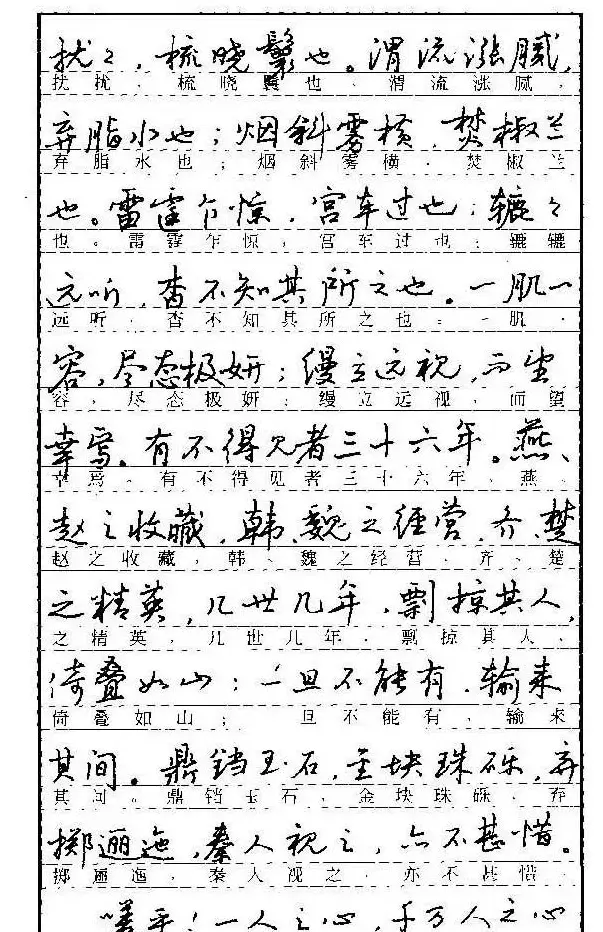 扰々，梳晓鬟也。渭流涨腻，
扰扰，梳晓鬟也。渭流涨腻，
弃脂水也；烟斜雾横，焚椒兰
弃脂水也；烟斜雾横，焚椒兰
也。雷霆乍惊，宫车过也；辘々
也。雷霆乍惊，宫车过也；辘辘
远听，杳不知其所之也。一肌一
远听，杳不知其所之也。一肌一
容，尽态极妍；缦立远视，而望
容，尽态极妍；缦立远视，而望
幸焉。有不得见者三十六年。燕、
幸焉。有不得见者三十六年。燕、
赵之收藏，韩、魏之经营，齐、楚
赵之收藏，韩、魏之经营，齐、楚
之精英，几世几年，剽掠其人，
之精英，几世几年，剽掠其人，
倚叠如山；一旦不能有，输来
倚叠如山；一旦不能有，输来
其间。鼎铛玉石，金块珠砾，弃
其间。鼎铛玉石，金块珠砾，弃
掷逦迤，秦人视之，亦不甚惜。
掷逦迤，秦人视之，亦不甚惜。
嗟乎！一人之心，千万人之心